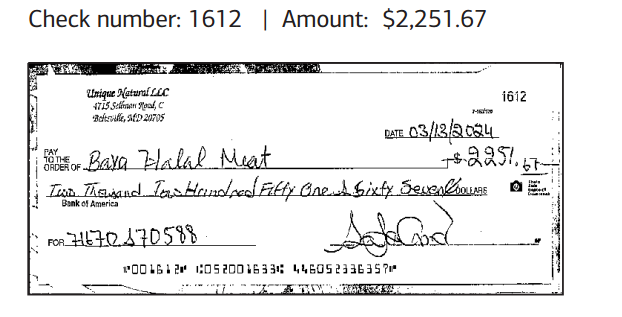 Check number: 1612 | Amount: $2,251.67
Unique Natural LLC
4715 Sellman Road, C
Beltsville, MD 20705
1612
DATE 03/13/2024
PAY TO THE ORDER OF Baya Halal Meat $2251.67
Two Thousand Two Hundred Fifty One & Sixty Seven DOLLARS
Bank of America
FOR
⑈001612⑈ ⑆052001633⑆ 446052336357⑈